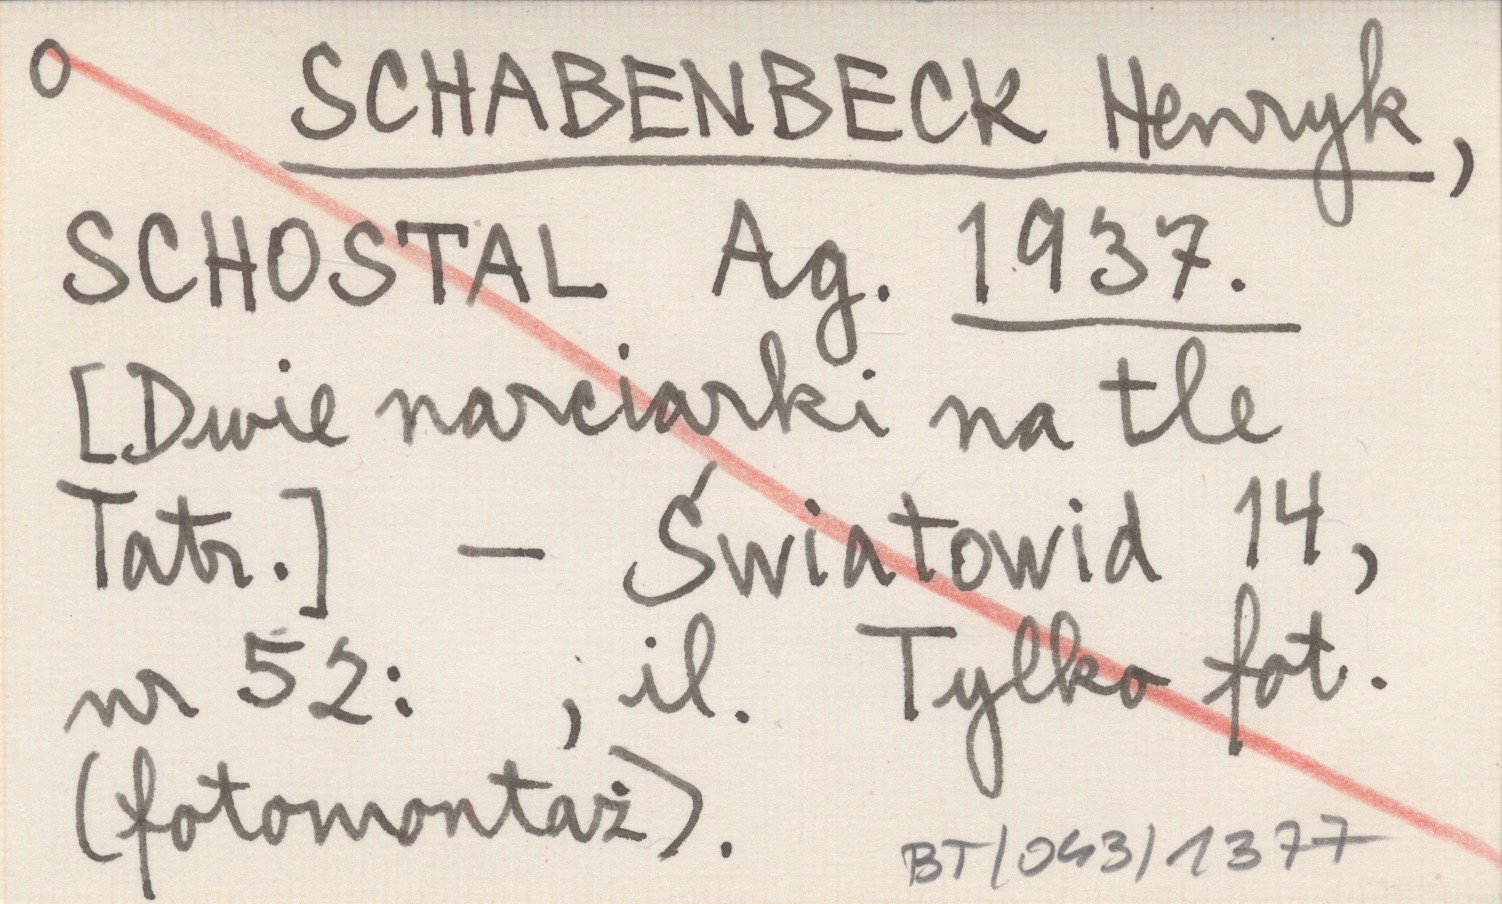 O SCHABENBECK Henryk,
SCHOSTAL Ag. 1937.
[Dwie narciarki na tle
Tatr.] – Światowid 14,
nr 52: , il. Tylko fot.
(fotomontaż).
BT/043/1377